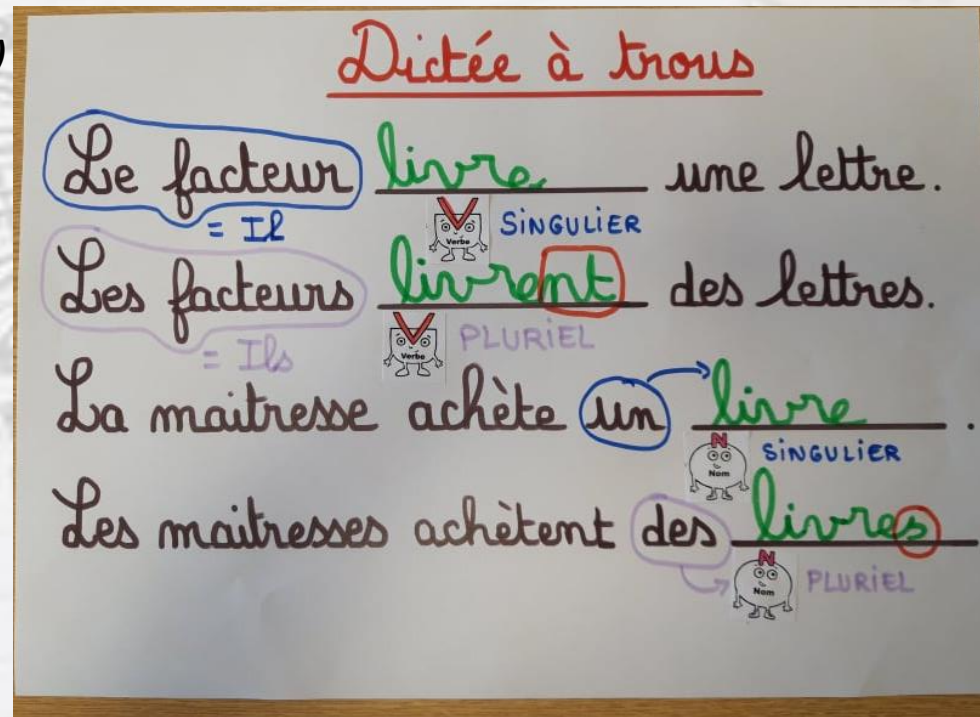 Dictée à trous
Le facteur livre une lettre.
= Il Verbe SINGULIER
Les facteurs livrent des lettres.
= Ils Verbe PLURIEL
La maitresse achète un livre.
N Nom SINGULIER
Les maitresses achètent des livres
N Nom PLURIEL